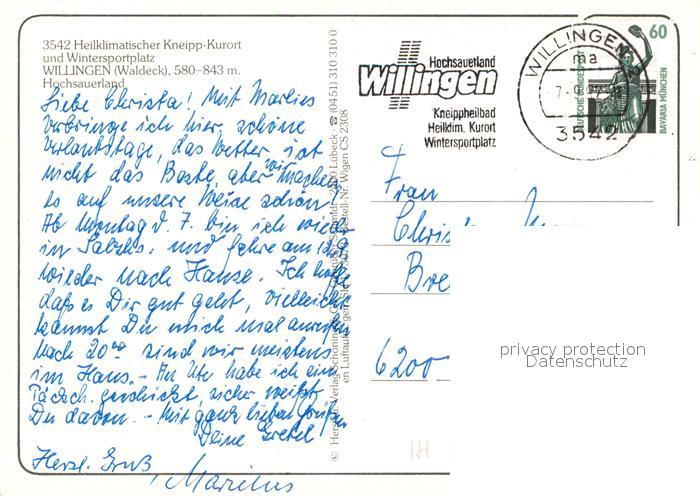 3542 Heilklimatischer Kneipp-Kurort
und Wintersportplatz
WILLINGEN (Waldeck), 580–843 m.
Hochsauerland
Liebe Christa! Mit Marlies
verbringe ich hier schöne
Urlaubstage, das Wetter ist
nicht das Beste, aber wir machen
es auf unsere Weise schön!
Ab Montag d. 7. bin ich wieder
in und fahre am
wieder nach Hause. Ich hoffe
daß es Dir gut geht, vielleicht
kannst Du mich mal anrufen
nach 20⁰⁰ sind wir meistens
im Haus. – An Ute habe ich ein
Päckch. geschickt, sicher weißt
Du davon. – Mit ganz lieben Grüßen
Deine Gretel
Herzl. Gruß
© Verlag Schöning & Co + Schmidt, 2400 Lübeck ☎ (0451) 310 310 0
Bestell-Nr. Wigen CS 2308
Hochsauerland
Willingen
Kneippheilbad
Heilklim. Kurort
Wintersportplatz
WILLINGEN
ma
3542
60
DEUTSCHE BUNDESPOST
BAVARIA MÜNCHEN
Frau
6200
privacy protection
Datenschutz